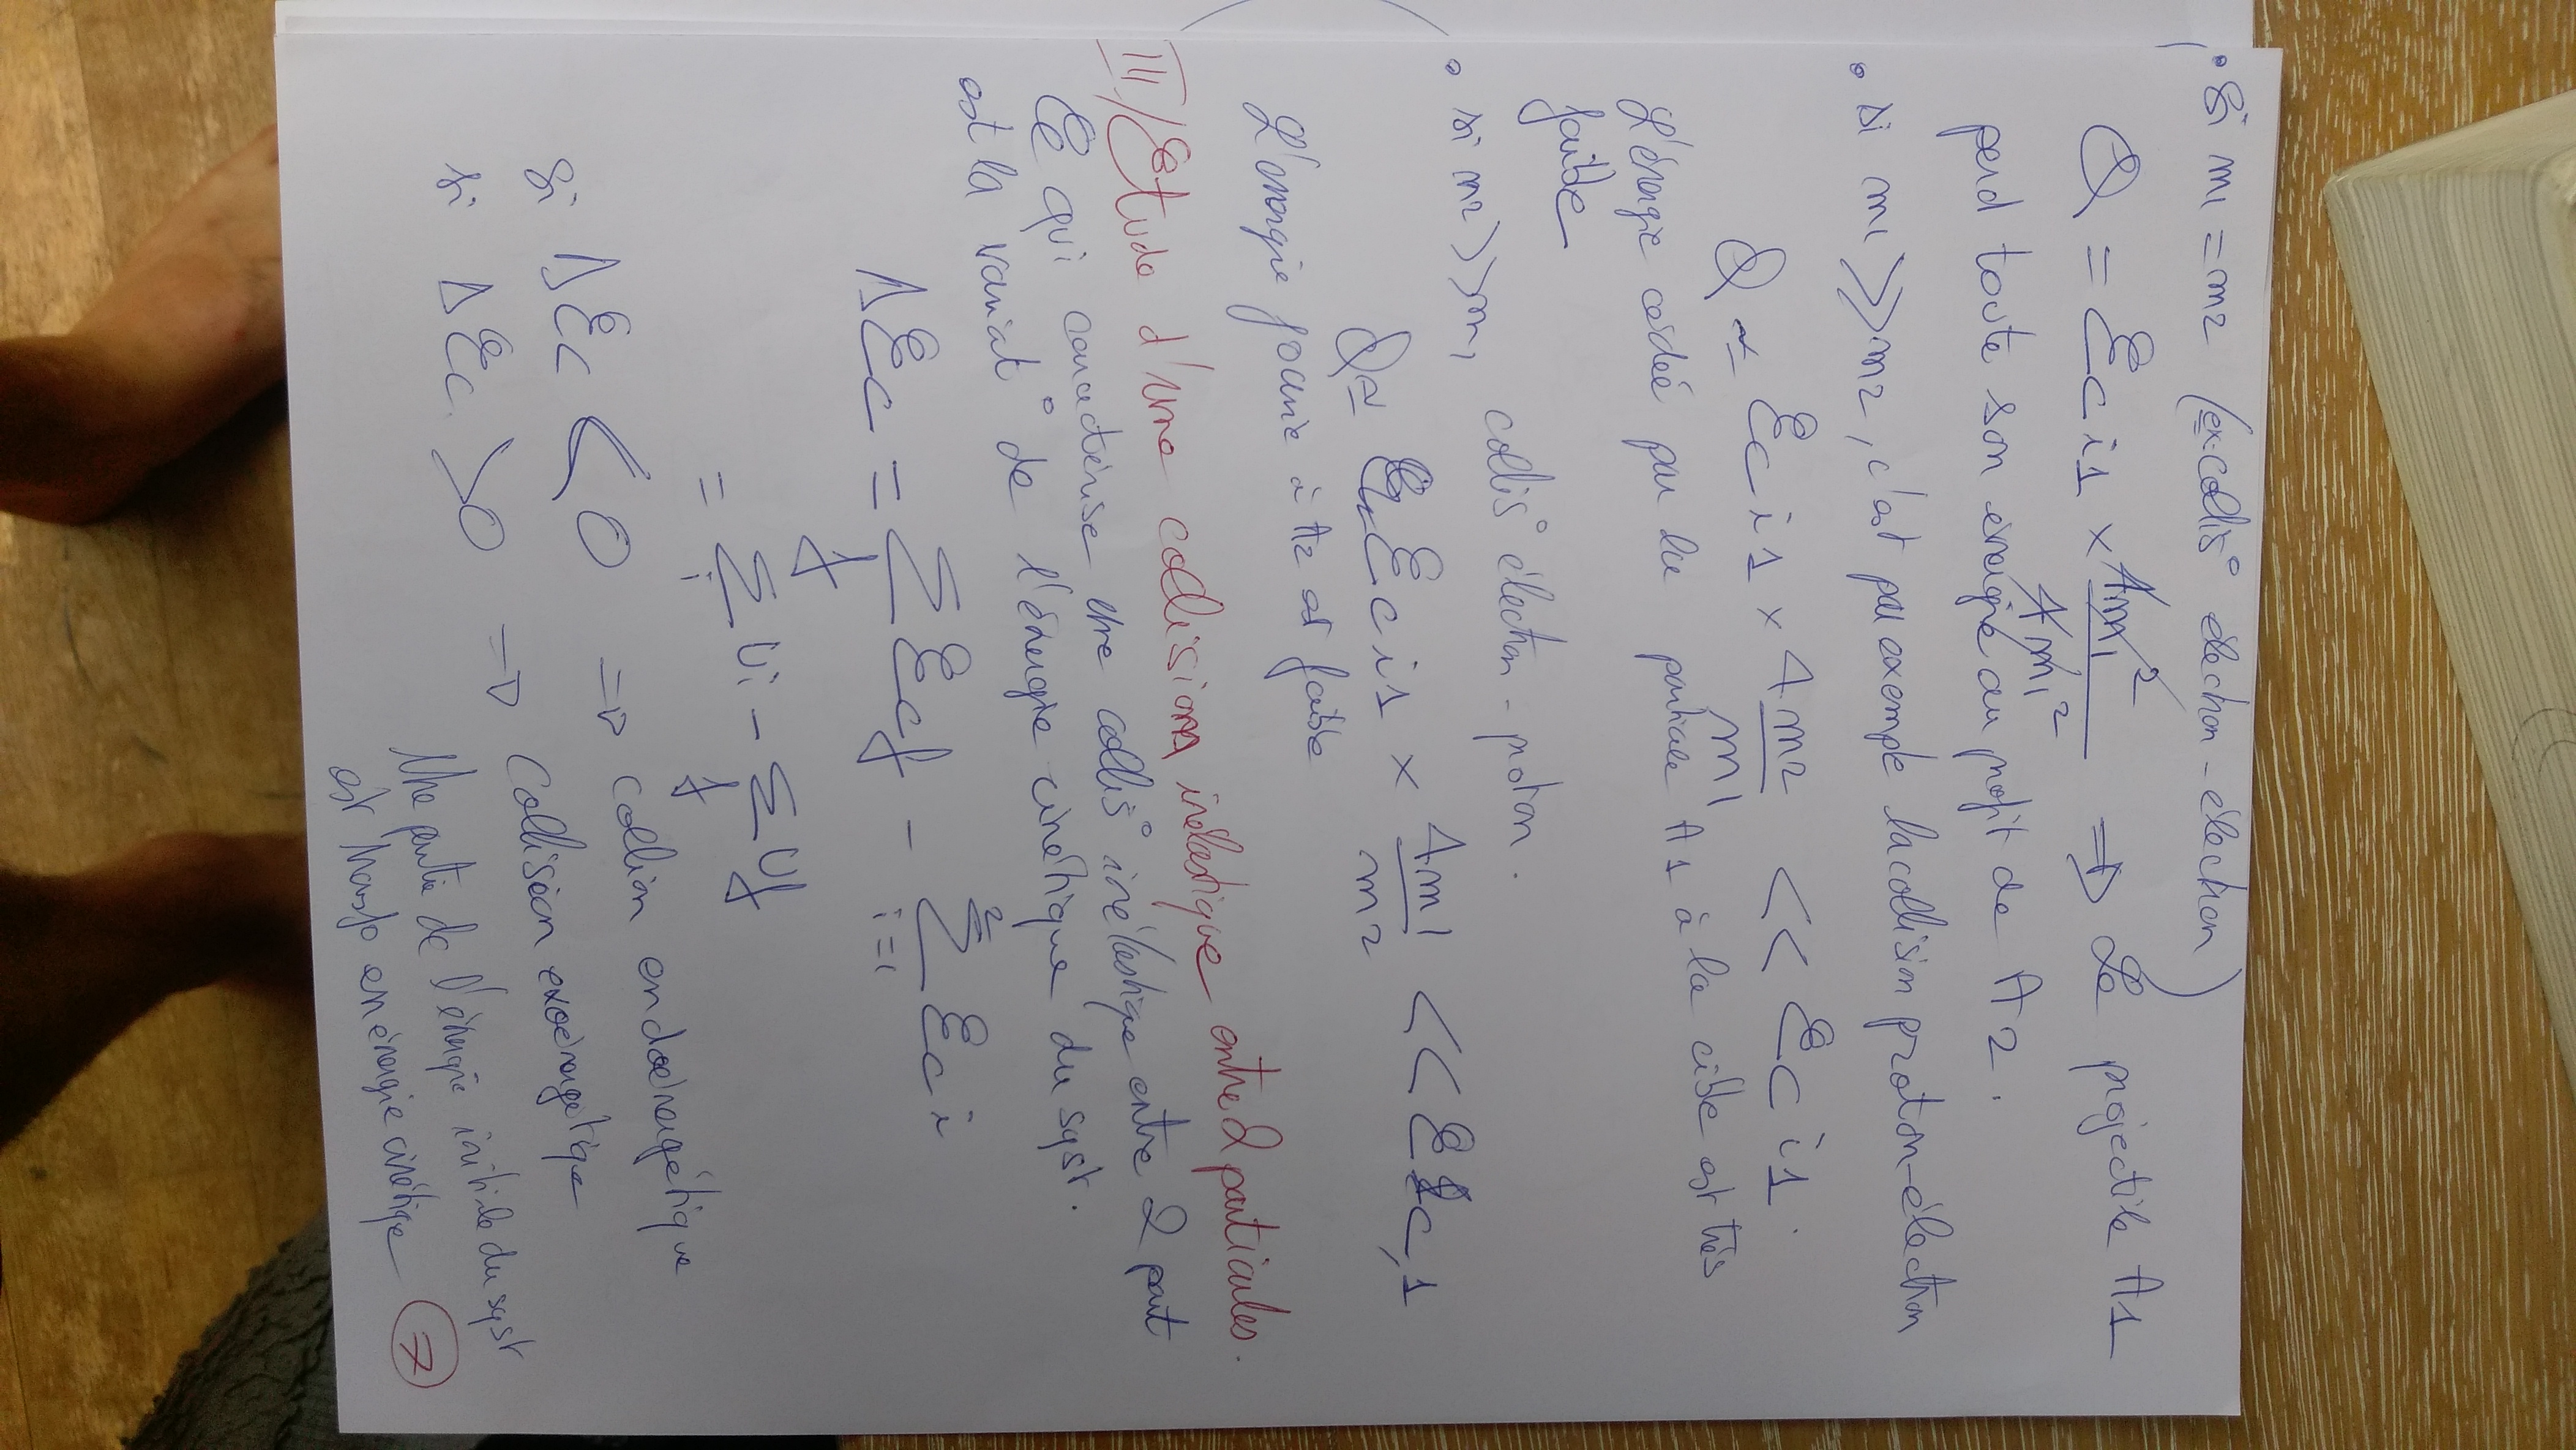 • Si m1 = m2 (ex collis° électron - électron)
Q = Eci1 × 4m1² / 4m1² ⇒ Le projectile A1
perd toute son énergie au profit de A2.
• si m1 >> m2, c'est par exemple la collision proton-électron
Q ≃ Eci1 × 4m2 / m1 << Eci1.
L'énergie cédée par la particule A1 à la cible est très
faible
• si m2 >> m1 collis° électron - proton.
Q ≃ Eci1 × 4m1 / m2 << Ec,1
L'énergie fournie à A2 est faible
III / Etude d'une collision inélastique entre 2 particules.
Ce qui caractérise une collis° inélastique entre 2 part
est la variat° de l'énergie cinétique du syst.
ΔEc = Σf Ecf - Σ²i=1 Eci
= Σi Ui - Σf Uf
Si ΔEc < 0 ⇒ collion endoénergétique
si ΔEc > 0 ⇒ Collision exoénergétique
Une partie de l'énergie initiale du syst
est transfo en énergie cinétique
7